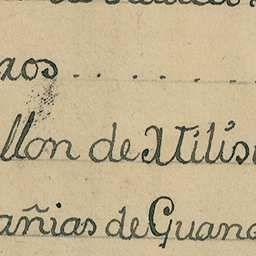 xos . . . . . .
llon de Milis
añias de Guana